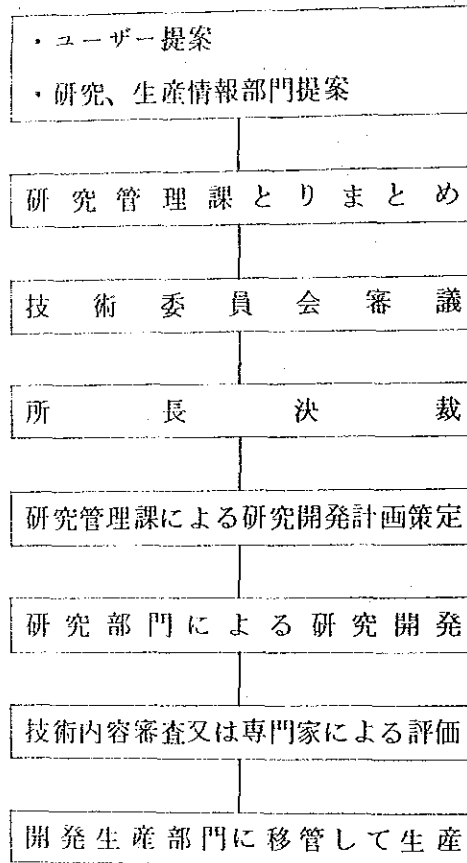 ・ユーザー提案
・研究、生産情報部門提案
研究管理課とりまとめ
技術委員会審議
所長決裁
研究管理課による研究開発計画策定
研究部門による研究開発
技術内容審査又は専門家による評価
開発生産部門に移管して生産